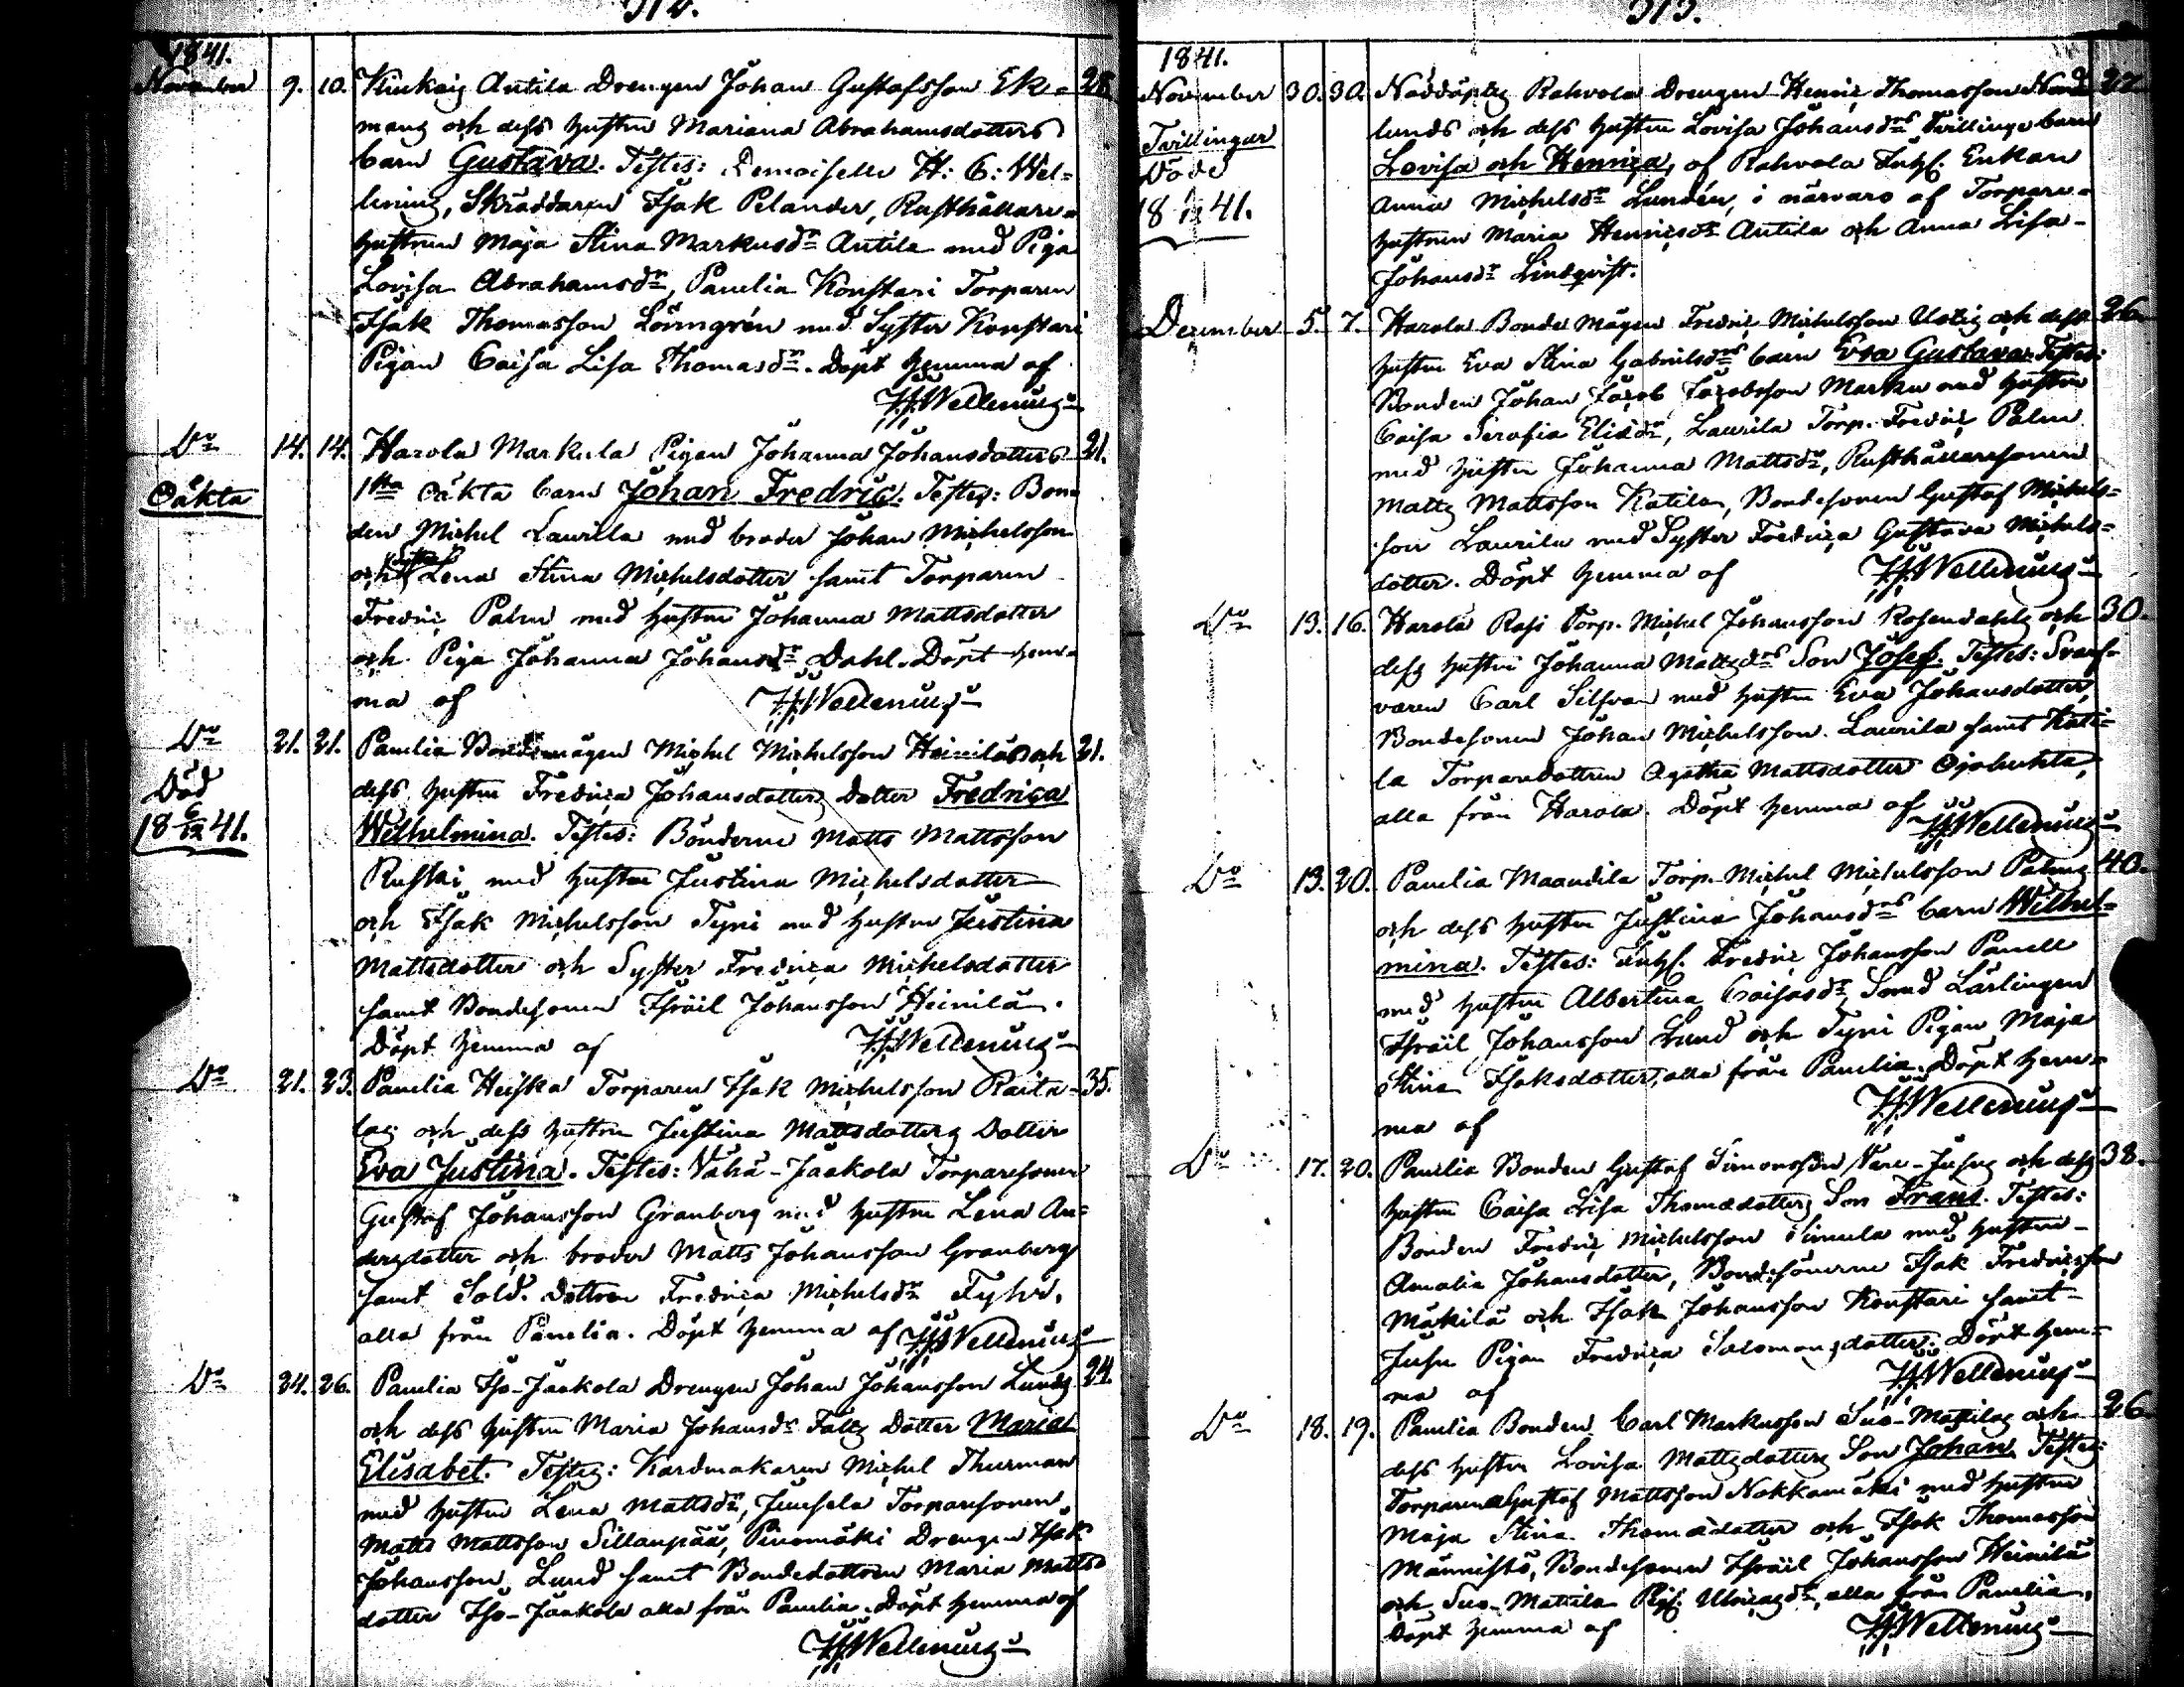 312.
1841.
November 9. 10. Kiukais Antila Drengen Johan Gustafsson Ek= 28
mans och dess hustru Mariana Abrahamsdotters
barn Gustava. Testes: Demoiselle H: C: Wel=
lening, Skräddaren Isak Pelander, Rusthållare
hustrun Maja Stina Markusdr Antila med Piga
Lovisa Abrahamsdr, Panelia Konstari Torparen
Isak Thomasson Lövngrén med Syster Konstari
Pigan Caisa Lisa Thomasdr. Döpt hemma af
Wellenius
Do 14. 14. Harola Markula Pigan Johanna Johansdotters 21.
Oäkta 1sta oäkta barn Johan Fredric. Testes: Bon=
den Michel Laurila med broder Johan Michelsson
och Lena Stina Michelsdotter samt Torparen
Fredric Palm med hustru Johanna Mattsdotter
och Piga Johanna Johansdr Dahl. Döpt hem=
ma af Wellenius
Do 21. 21. Panelia Bondemågen Michel Michelsson Heiniläs och 21.
Död dess hustru Fredrica Johansdotters dotter Fredrica
18 6/12 41. Wilhelmina. Testes: Bönderne Matts Mattsson
Ruskai med hustru Justina Michelsdotter
och Isak Michelsson Tyni med hustru Justina
Mattsdotter och Syster Fredrica Michelsdotter
samt Bondesonen Israil Johansson Heinilä.
Döpt hemma af Wellenius
Do 21. 23. Panelia Heiska Torparen Isak Michelsson Raita= 35.
las och dess hustru Justina Mattsdotters Dotter
Eva Justina. Testes: Vähä-Jaakola Torparesonen
Gustaf Johansson Granberg med hustru Lena An=
dersdotter och broder Matts Johansson Granberg
samt Sold. dottren Fredrica Michelsdr Fyhr,
alla från Panelia. Döpt hemma af Wellenius
Do 24. 26. Panelia Iso-Jaakola Drengen Johan Johansson Lunds 24.
och dess hustru Maria Johansdr Fälts Dotter Maria
Elisabet. Testes: Kardmakaren Michel Thurman
med hustru Lena Mattsdr, Juusela Torparesonen
Matts Mattsson Sillanpää, Pinomäki Drengen Isak
Johansson Lund samt Bondedottren Maria Matts
dotter Iso-Jaakola alla från Panelia. Döpt hemma af
Wellenius
313.
1841.
November 30. 30. Nöddöptes Rahvola Drengen Henric Thomasson Nord 27
Tvillingar lunds och dess hustru Lovisa Johansdrs Tvillinge barn
Döde Lovisa och Henrica, af Rahvola Inhs. Enkan
18 41. Anna Michelsdr Lundén, i närvaro af Torpare=
hustrun Maria Henricsdr Antila och Anna Lisa
Johansdr Lindqvist.
December 5. 7. Harola Bonde Mågen Fredric Michelsson Uotis och dess 26
hustru Eva Stina Gabrielsdrs barn Eva Gustava. Testes:
Bonden Johan Jacob Jacobsson Marku med hustru
Caisa Serafia Eliædr, Laurila Torp. Fredric Palm
med hustru Johanna Mattsdr, Rusthållaresonen
Matts Mattsson Katila, Bondesonen Gustaf Michels=
son Laurila med Syster Fredrica Gustava Michels=
dotter. Döpt hemma af Wellenius
Do 13. 16. Harola Rasi Torp. Michel Johansson Rosendahls och 30.
dess hustru Johanna Mattsdrs Son Josef. Testes: Svarf=
varen Carl Silfvan med hustru Eva Johansdotter,
Bondesonen Johan Michelsson Laurila samt Kati=
la Torparedottren Agatha Mattsdotter Ojahuhta,
alla från Harola. Döpt hemma af
Wellenius
Do 13. 20. Panelia Maandila Torp. Michel Michelsson Palms 40.
och dess hustru Justina Johansdrs barn Wilhel=
mina. Testes: Inhs. Fredric Johansson Panell
med hustru Albertina Caisasdr, Smed Lärlingen
Israil Johansson Lund och Tyni Pigan Maja
Stina Isaksdotter, alla från Panelia. Döpt hem=
ma af Wellenius
Do 17. 20. Panelia Bonden Gustaf Simonsson Juhns och dess 38.
hustru Caisa Lisa Thomædotters Son Frans. Testes:
Bonden Fredric Michelsson Simula med hustru
Amalia Johansdotter, Bondesönerne Isak Fredricsson
Mäkilä och Isak Johansson Konstari samt
Juhn Pigan Fredrica Salomonsdotter. Döpt hem=
ma af Wellenius
Do 18. 19. Panelia Bonden Carl Markusson Suo-Mattilas och 26
dess hustru Lovisa Mattsdotters Son Johan. Testes:
Torparen Gustaf Mattsson Nokkamäki med hustru
Maja Stina Thomædotter och Isak Thomasson
Männistö, Bondesonen Israil Johansson Heinilä
och Suo-Mattila Pig. Ulricasdr, alla från Panelia.
Döpt hemma af Wellenius